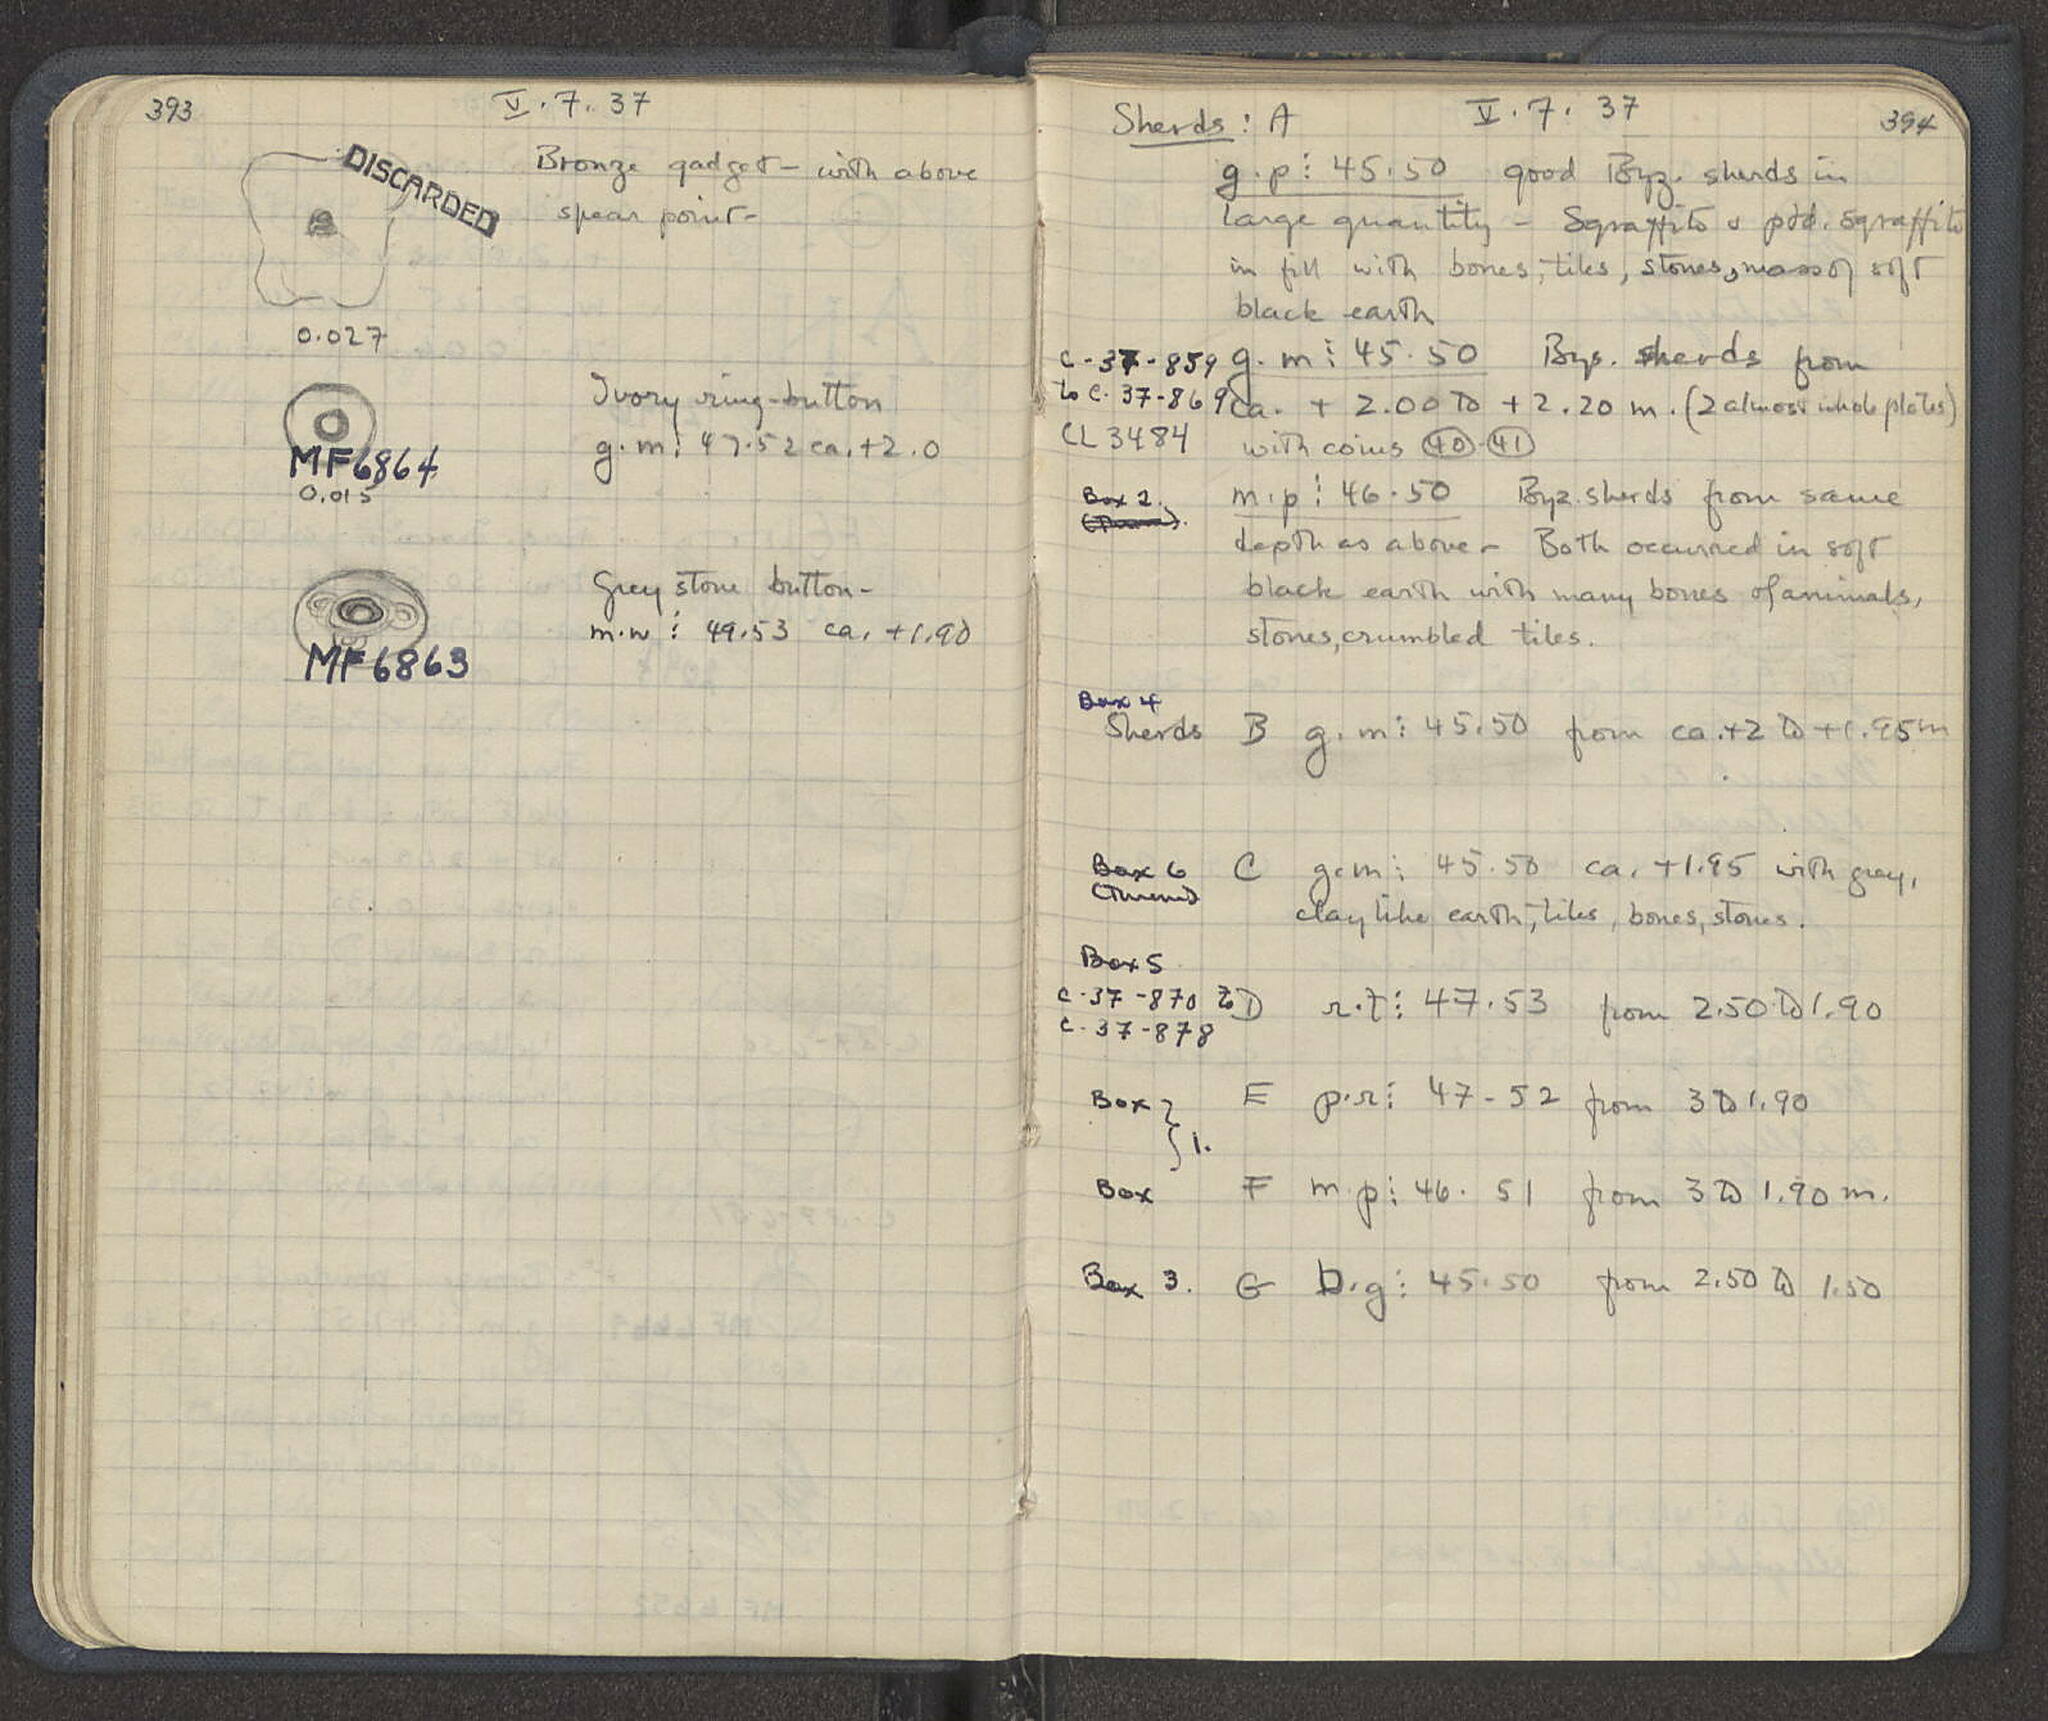 393
V. 7. 37
DISCARDED
Bronze gadget - with above
spear point -
0.027
Ivory ring-button
g.m: 47.52 ca. +2.0
MF6864
0.015
Grey stone button -
m.w: 49.53 ca. +1.90
MF6863
Sherds: A V. 7. 37 394
g.p: 45.50 good Byz. sherds in
large quantity - Sgraffito & ptd. sgraffito
in fill with bones, tiles, stones, mass of soft
black earth
C-37-859 g.m: 45.50 Byz. sherds from
to C-37-869 ca. + 2.00 to + 2.20 m. (2 almost whole plates)
CL 3484 with coins 40-41
Box 2. m.p: 46.50 Byz. sherds from same
depth as above - Both occurred in soft
black earth with many bones of animals,
stones, crumbled tiles.
Box 4
Sherds B g.m: 45.50 from ca. +2 to +1.95 m
Box 6 C g.m: 45.50 ca. +1.95 with grey,
claylike earth, tiles, bones, stones.
Box 5
C-37-870 to D r.t: 47.53 from 2.50 to 1.90
C-37-878
Box E p.r: 47-52 from 3 to 1.90
1.
Box F m.p: 46. 51 from 3 to 1.90 m.
Box 3. G b.g: 45.50 from 2.50 to 1.50